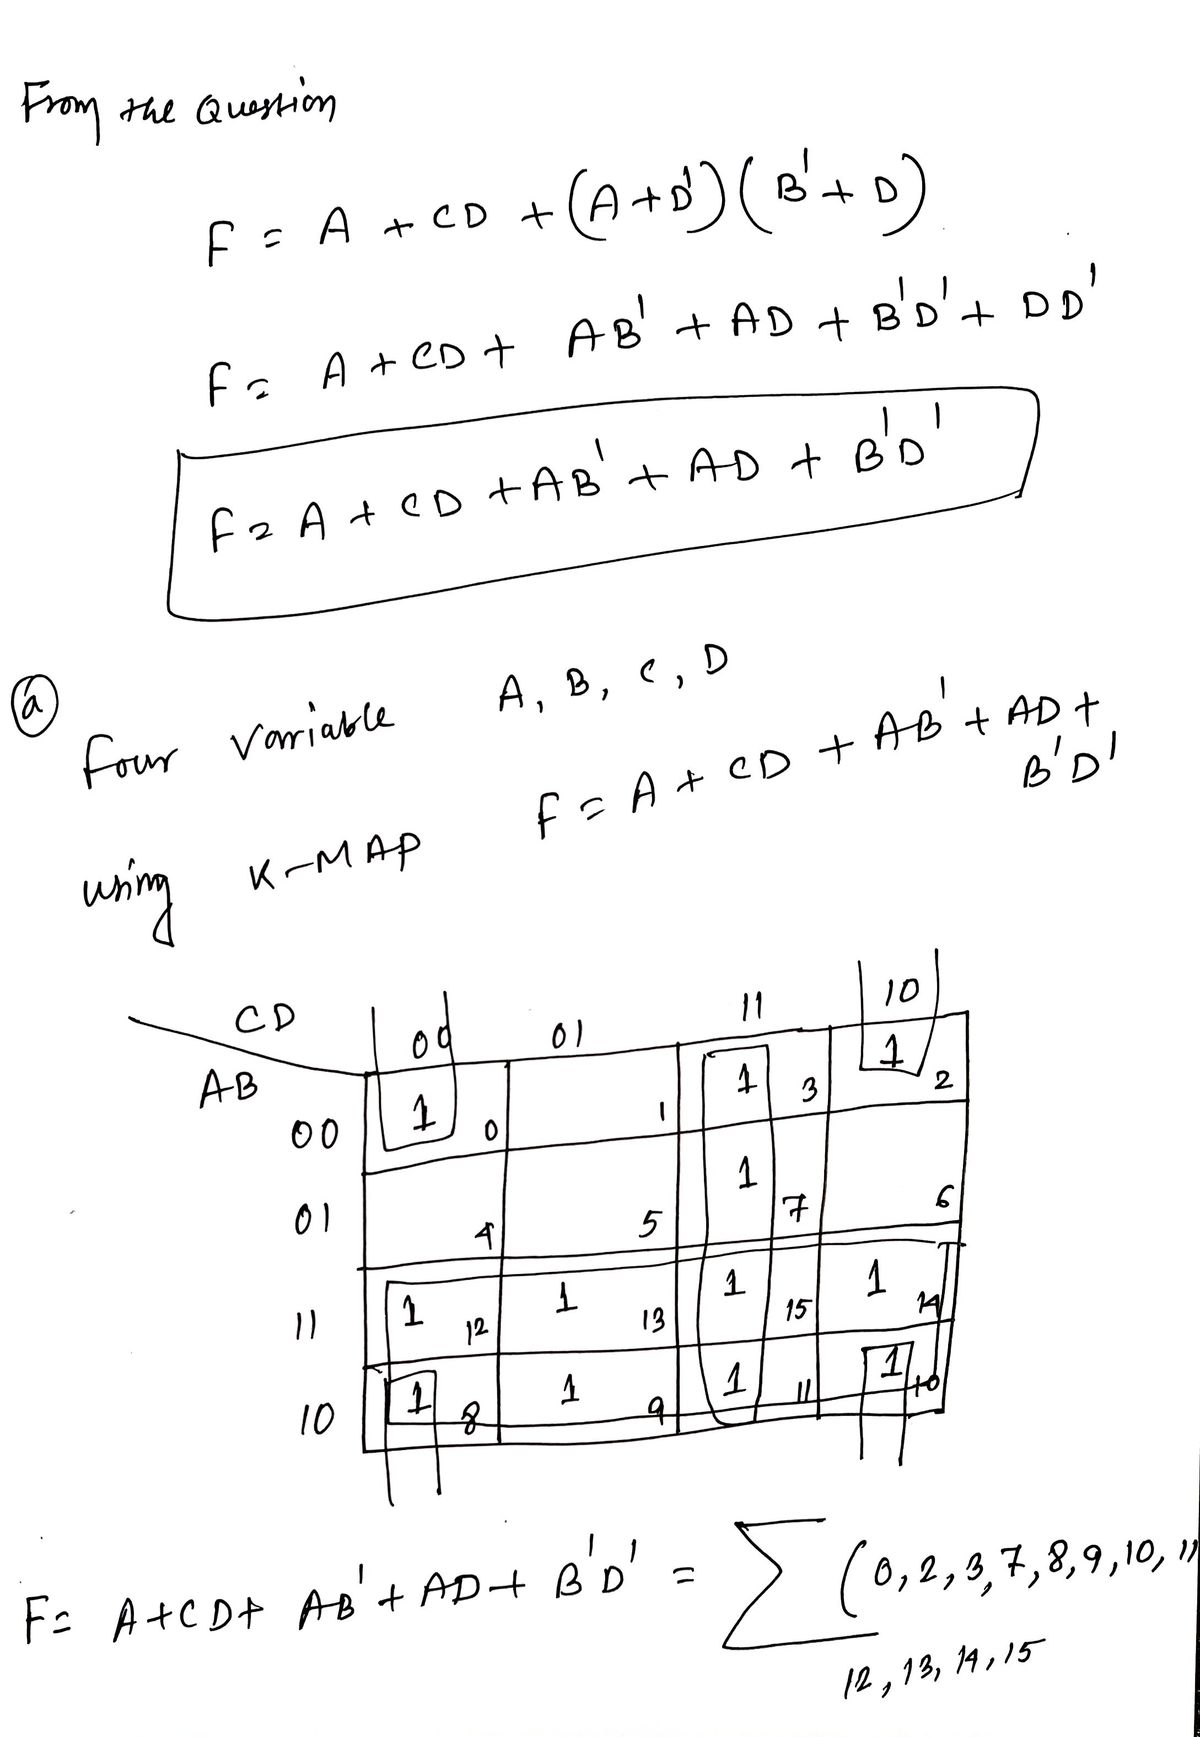 From the Question
F = A + CD + (A+D')(B'+D)
F = A + CD + AB' + AD + B'D' + DD'
F = A + CD + AB' + AD + B'D'
(a)
four variable A, B, C, D
F = A + CD + AB' + AD +
B'D'
using K-MAP
CD 00 01 11 10
AB
00 1 0 1 1 3 1 2
01 4 5 1 7 6
11 1 12 1 13 1 15 1 14
10 1 8 1 9 1 11 1 10
F = A+CD+ AB'+AD+ B'D' = Σ (0,2,3,7,8,9,10,11
12, 13, 14, 15